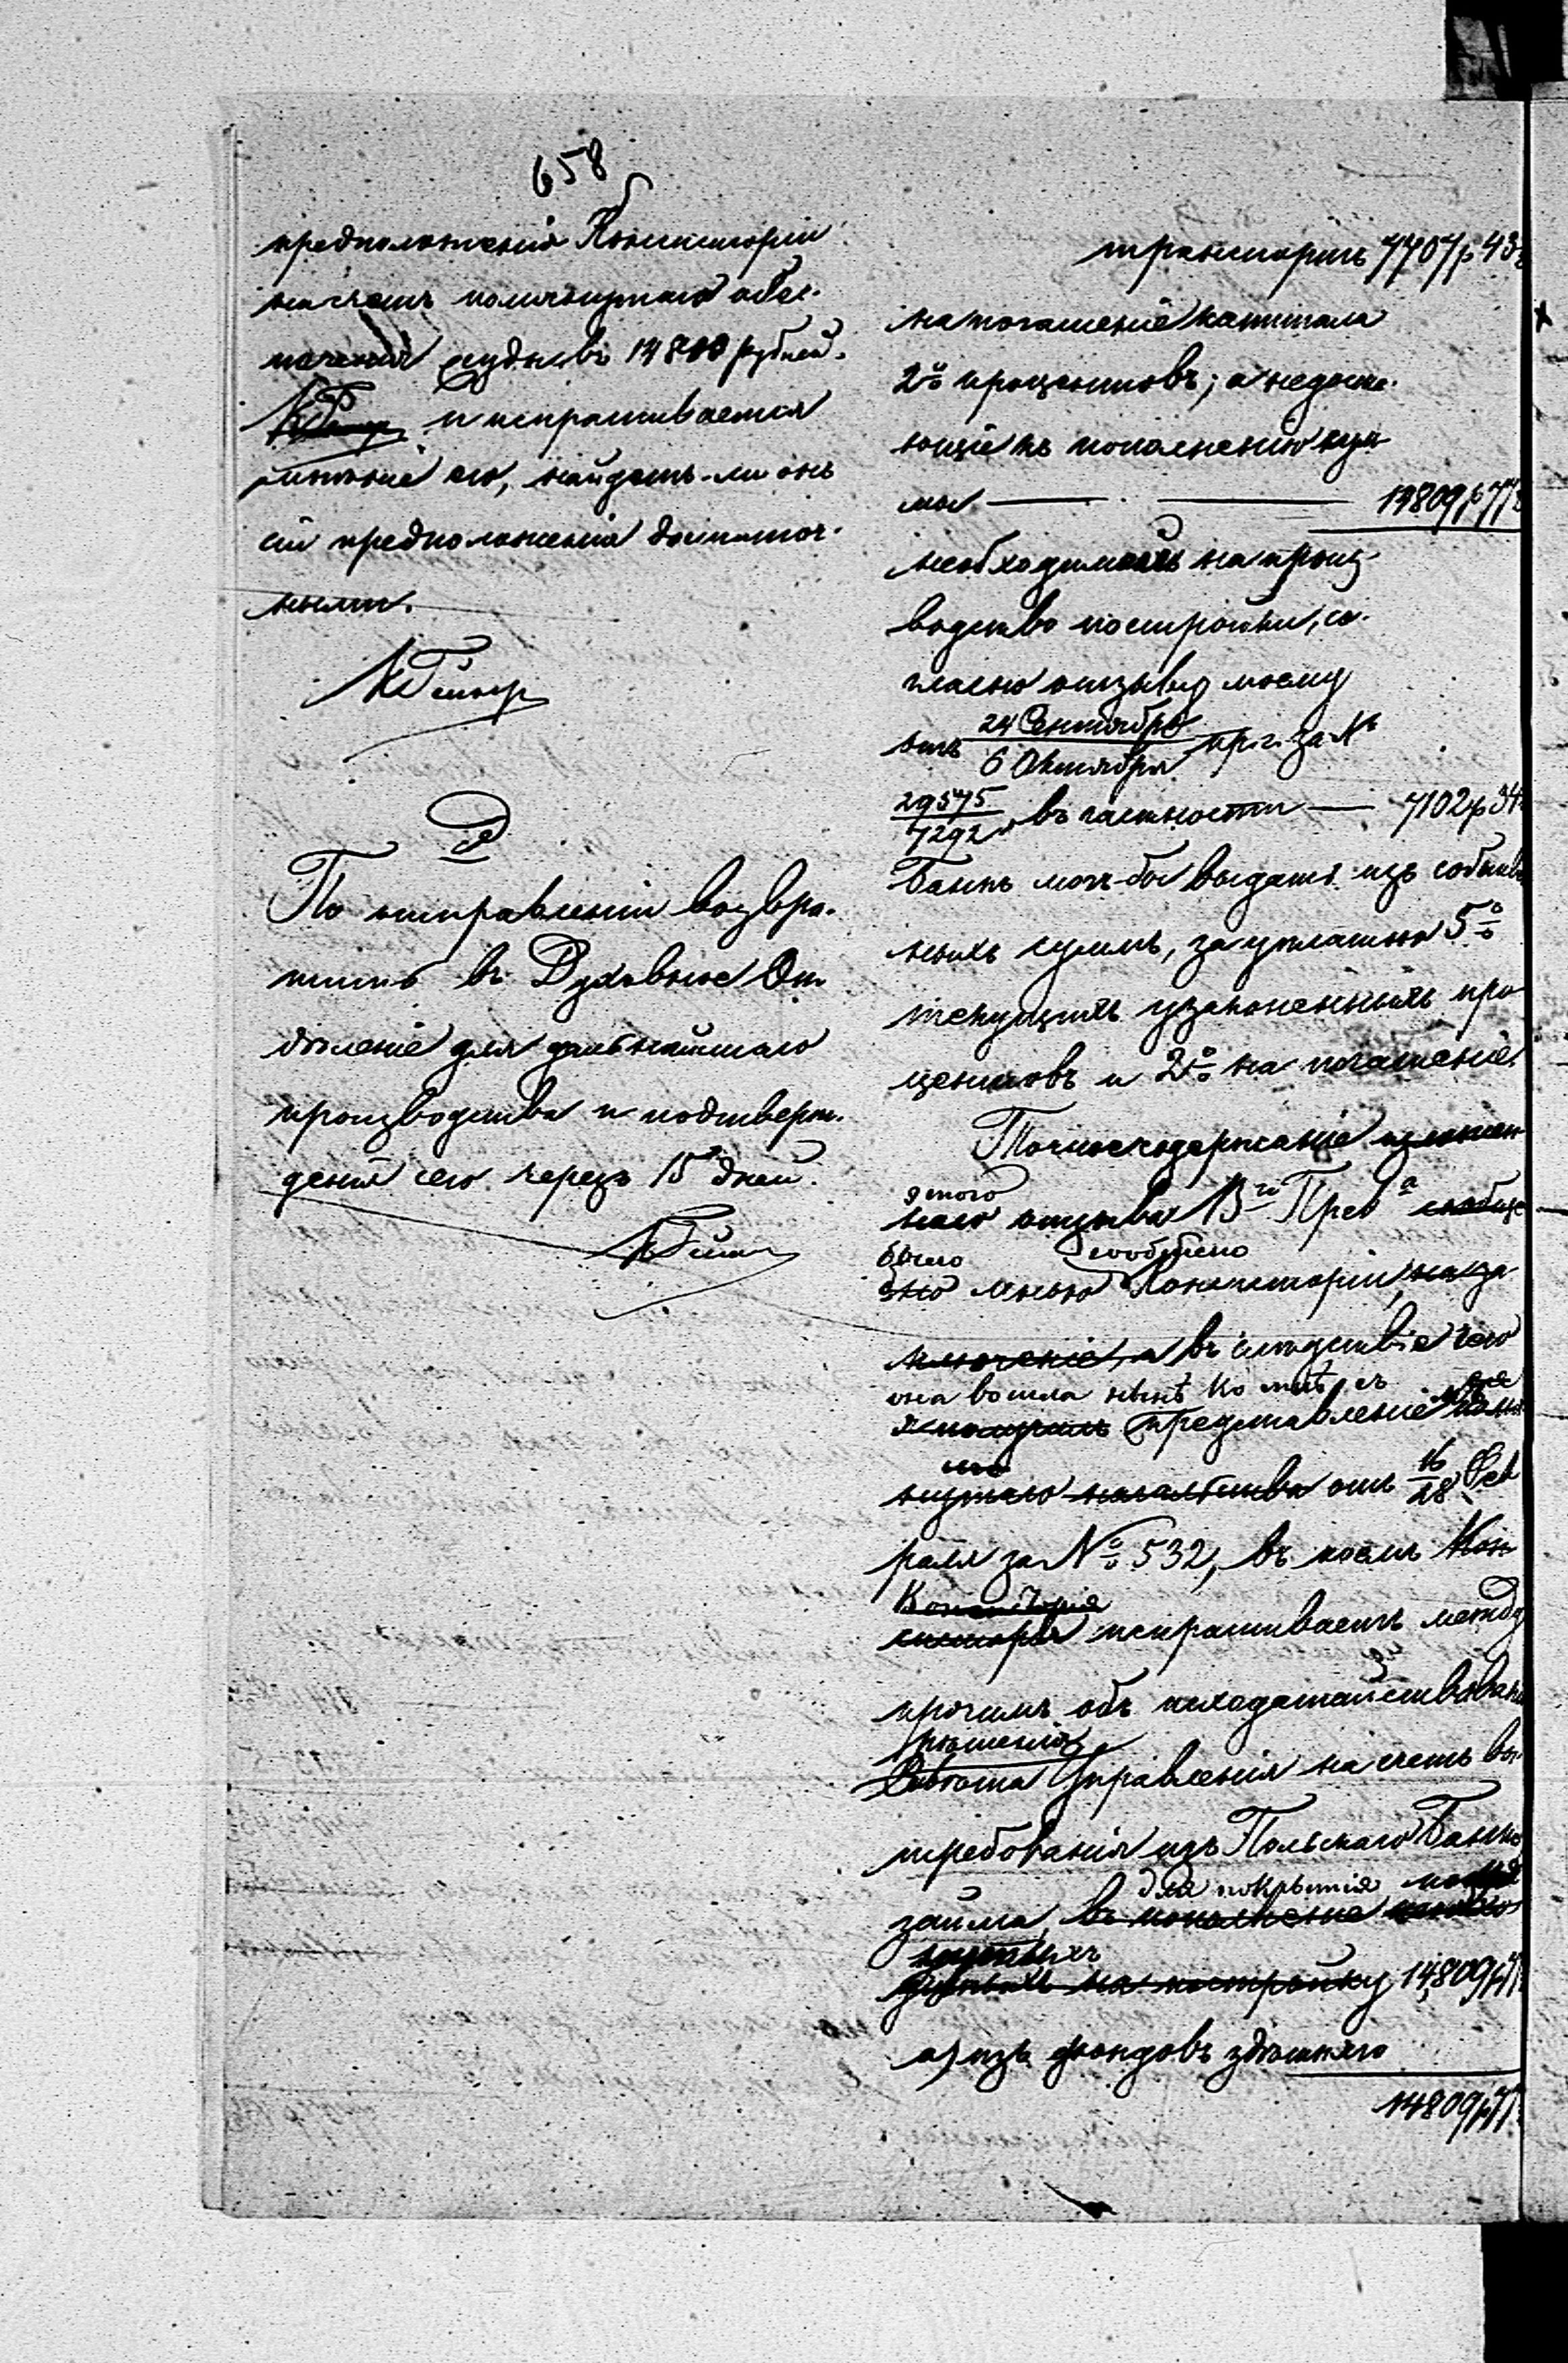 658
предположенія Консисторіи
на счетъ помянутаго обез-
печенія ссуды въ 14800 рублей.
и испрашивается
мнѣніе его, найдетъ-ли онъ
сіи предположенія достаточ-
ными.
По отправленіи возвра-
тить въ Духовное От
дѣленіе для дальнѣйшаго
производства и подтверж-
денія сего черезъ 15 дней.
транспортъ 7707р 43
на погашеніе капитала
2% процентовъ; а недоста-
ющіе къ пополненію сум
мы — 14809р 77
необходимой на произ-
водство постройки, со-
гласно отзыву моему
отъ 24 Сентября / 6 Октября пр. г. за №
29575/7292, въ частности — 7102р 34
Банкъ могъ-бы выдать изъ собствен
ныхъ суммъ, за уплатою 5%
текущихъ узаконенныхъ про
центовъ и 2% на погашеніе.
Точное содержаніе изложен
этого
наго отзыва В-го Прев-а сообще
было сообщено
но мною Консисторіи,
въ слѣдствіе чего
она вошла нынѣ ко мнѣ съ
я получилъ представленіе
нутаго начальства отъ 16/28 Фев
раля за № 532, въ коемъ Кон
Консисторія
систорія испрашиваетъ между
прочимъ объ исходатайствованіи
рѣшенія
Совѣта Управленія на счетъ вы
требованія изъ Польскаго Банка
для покрытія
займа, въ пополненіе
на постройку 14,809р 77
а) изъ фондовъ здѣшняго
14809р 77